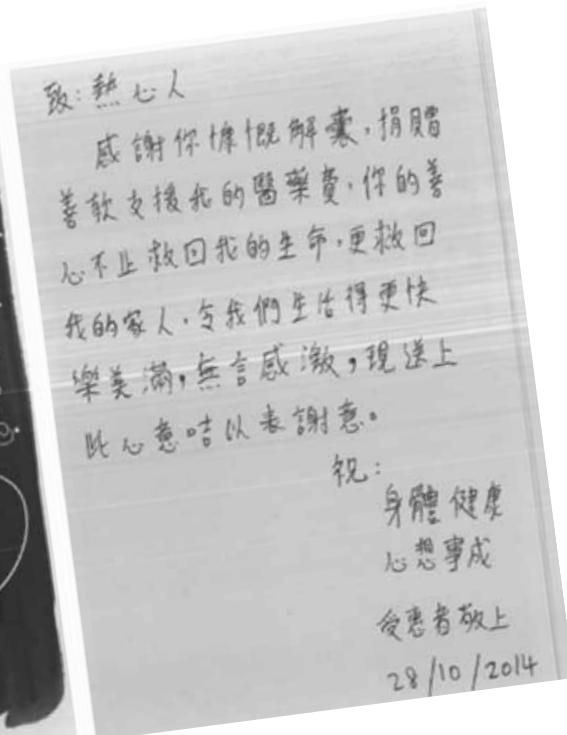 致：熱心人
感謝你慷慨解囊，捐贈
善款支援我的醫藥費，你的善
心不止救回我的生命，更救回
我的家人，令我們生活得更快
樂美滿，無言感激，現送上
此心意咭以表謝意。
祝：
身體健康
心想事成
受惠者敬上
28/10/2014